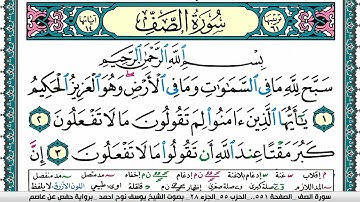 سُورَةُ الصَّفِّ
بِسْمِ ٱللَّهِ ٱلرَّحْمَٰنِ ٱلرَّحِيمِ
سَبَّحَ لِلَّهِ مَا فِى ٱلسَّمَٰوَٰتِ وَمَا فِى ٱلْأَرْضِ وَهُوَ ٱلْعَزِيزُ ٱلْحَكِيمُ
١ يَٰٓأَيُّهَا ٱلَّذِينَ ءَامَنُوا۟ لِمَ تَقُولُونَ مَا لَا تَفْعَلُونَ ٢
كَبُرَ مَقْتًا عِندَ ٱللَّهِ أَن تَقُولُوا۟ مَا لَا تَفْعَلُونَ ٣ إِنَّ
سورة الصف الصفحة ٥٥١ الحزب ٥٥ الجزء ٢٨ بصوت الشيخ يوسف نوح احمد برواية حفص عن عاصم